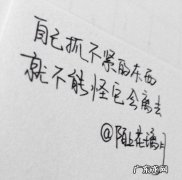 自己抓不紧的东西
就不能怪它会离去
@陌上花语